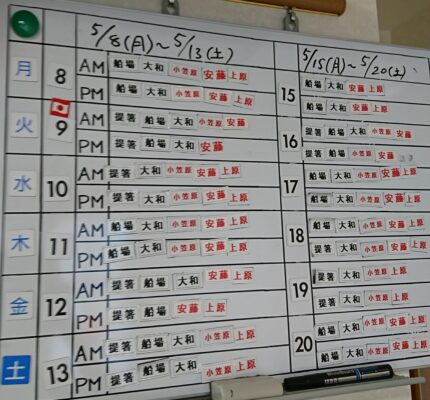 5/8(月)～5/13(土)
月 8 AM 船場 大和 小笠原 安藤 上原
PM 船場 大和 小笠原 安藤 上原
火 9 AM 提箸 船場 大和 小笠原 安藤
PM 提箸 船場 大和 安藤
水 10 AM 提箸 大和 小笠原 安藤 上原
PM 提箸 大和 小笠原 安藤 上原
木 11 AM 船場 大和 小笠原 安藤 上原
PM 船場 大和 小笠原 安藤 上原
金 12 AM 提箸 船場 大和 安藤 上原
PM 提箸 船場 大和 安藤 上原
土 13 AM 提箸 船場 大和 小笠原 上原
PM 提箸 船場 大和 小笠原 上原
5/15(月)～5/20(土)
15 船場 大和 安藤 上原
船場 大和 安藤 上原
16 提箸 船場 大和 小笠原 安藤
提箸 船場 小笠原 安藤
17 船場 大和 小笠原 安藤 上原
船場 大和 小笠原 安藤 上原
18 船場 大和 小笠原 安藤 上原
提箸 船場 大和 小笠原 安藤 上原
19 提箸 船場 大和 小笠原 上原
提箸 船場 大和 小笠原 上原
20 船場 大和 小笠原 安藤 上原
船場 大和 小笠原 安藤 上原